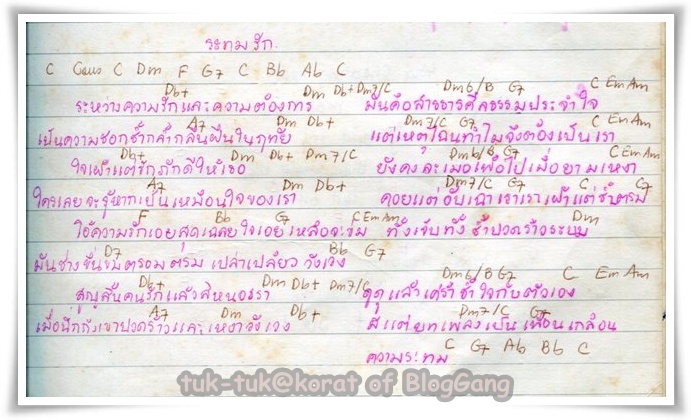 ระทมรัก
C Caus C Dm F G7 C Bb Ab C
Db+ Dm Db+ Dm7/C Dm6/B G7 C Em Am
ระหว่างความรักและความต้องการ มันคือสายธารศีลธรรมประจำใจ
A7 Dm Db+ Dm7/C G7 C Em Am
เป็นความชอกช้ำกล้ำกลืนฝืนในฤทัย แต่เหตุไฉนทำไมจึงต้องเป็นเรา
Db+ Dm Db+ Dm7/C Dm6/B G7 C Em Am
ใจเฝ้าแต่รักภักดีให้เธอ ยังคงละเมอเพ้อไปเมื่อยามเหงา
A7 Dm Db+ Dm7/C G7 C C7
ใครเลยจะรู้หากเป็นเหมือนใจของเรา คอยแต่อับเฉาเราเฝ้าแต่ซ้ำตรม
F Bb G7 C Em Am Dm
โอ้ความรักเอยสุดเฉลย ใจเอยเหลือจะข่ม ทั้งเจ็บทั้งช้ำปวดร้าวระบม
D7 Bb G7
มันช่างขื่นขมตรอมตรม เปล่าเปลี่ยววังเวง
Db+ Dm Db+ Dm7/C Dm6/B G7 C Em Am
สูญสิ้นคนรักแล้วสิหนอเรา ดูแล้วเศร้าช้ำใจกับตัวเอง
A7 Dm Db+ Dm7/C G7
เมื่อนึกถึงเขาปวดร้าวและเหงาวังเวง มีแต่บทเพลงเป็นเพื่อนเกลื่อน
C G7 Ab Bb C
ความระทม
tuk-tuk@korat of BlogGang